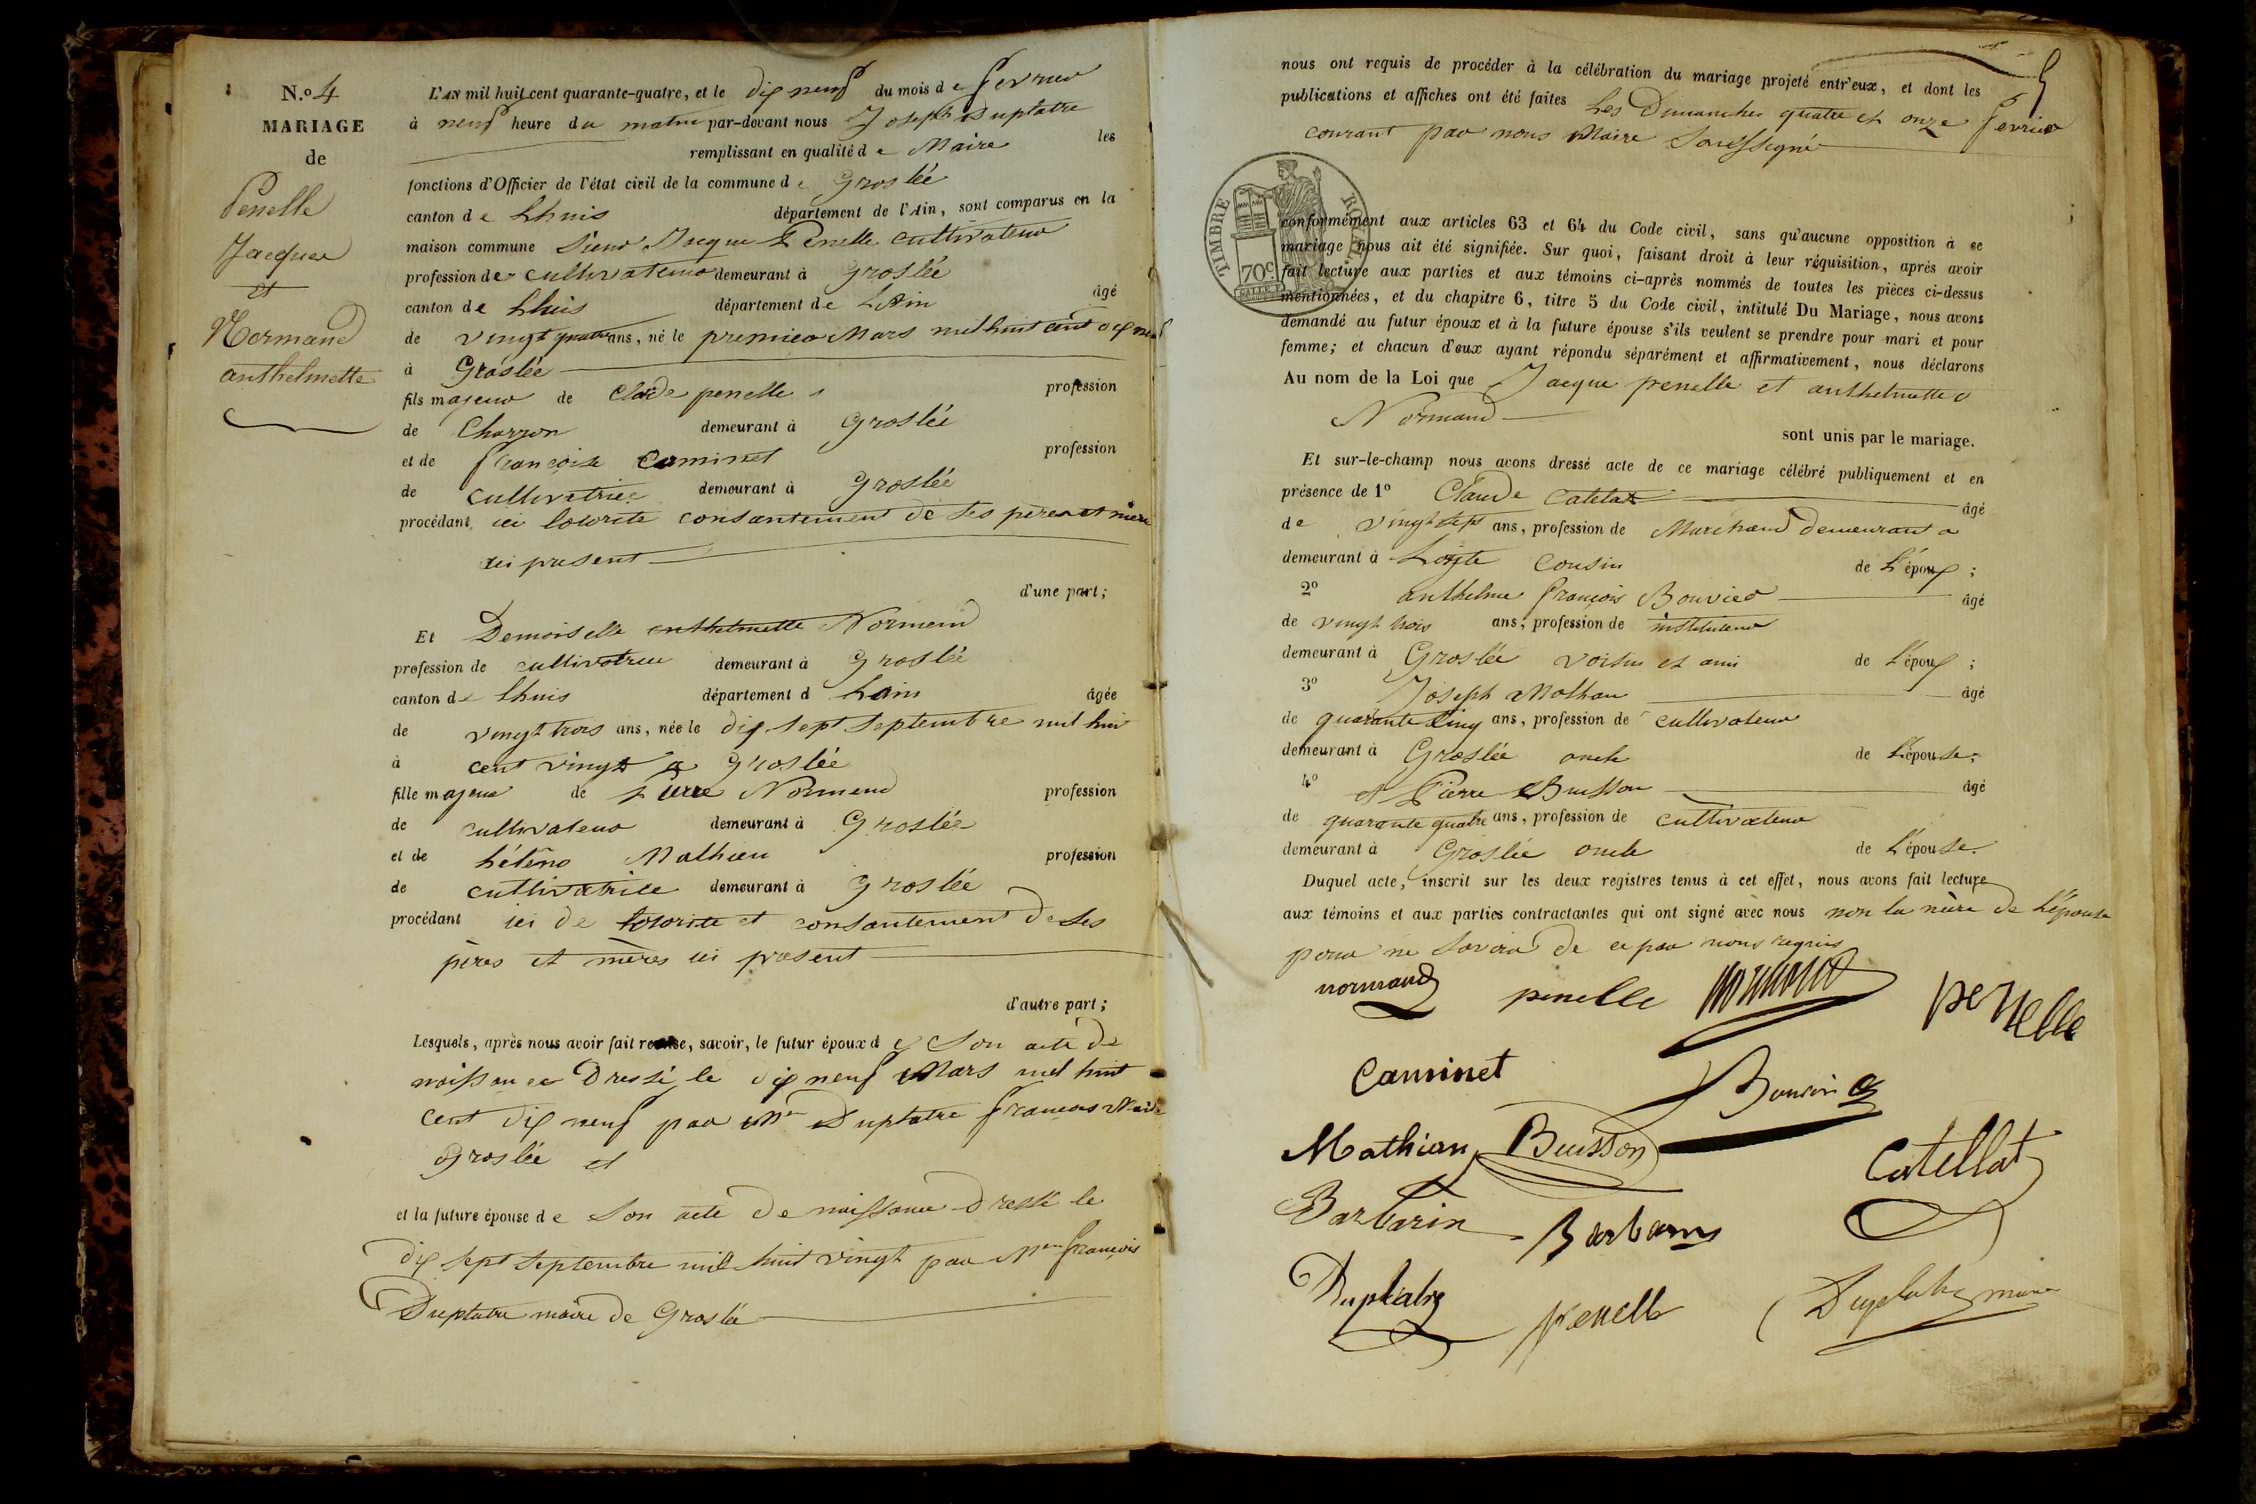 N.º 4
MARIAGE
de
Penelle
Jacques
et
Normand
anthelmette
L'AN mil huit cent quarante-quatre, et le dix neuf du mois de fevrier
à neuf heure du matin par-devant nous Joseph Duplatre
remplissant en qualité de Maire les
fonctions d'Officier de l'état civil de la commune de Groslée
canton de Lhuis département de l'Ain, sont comparus en la
maison commune Sieur Jacque Penelle cultivateur
profession de cultivateur demeurant à Groslée
canton de Lhuis département de L'Ain âgé
de vingt quatre ans, né le premier Mars mil huit cent dix neuf
à Groslée
fils majeur de Claude penelle profession
de Charron demeurant à Groslée
et de françoise Caminet profession
de cultivatrice demeurant à Groslée
procédant ici lotorite consantement de ses peres et mere
ici present
d'une part;
Et Demoiselle anthelmette Normend
profession de cultivatrice demeurant à Groslée
canton de Lhuis département d Lain âgée
de vingt trois ans, née le dix sept septembre mil hui
à cent vingt a Groslée
fille majeur de pierre Normend profession
de cultivateur demeurant à Groslée
et de héléne Mathieu profession
de cultivatrice demeurant à Groslée
procédant ici de lotorite et consantement de ses
pères et mères ici present
d'autre part;
Lesquels, après nous avoir fait remise, savoir, le futur époux de Son acte de
naissance Dressé le dix neuf Mars mil huit
cent dix neuf par Mr Duplatre francois Maire
Groslée et
et la future épouse de Son acte de naissance Dressé le
dix sept septembre mil huit vingt par Mr françois
Duplatre maire de Groslé
5
nous ont requis de procéder à la célébration du mariage projeté entr'eux, et dont les
publications et affiches ont été faites Les Dimanches quatre et onze fevrier
courant par nous Maire Soussigné
TIMBRE ROYAL
70c
conformément aux articles 63 et 64 du Code civil, sans qu'aucune opposition à ce
mariage nous ait été signifiée. Sur quoi, faisant droit à leur réquisition, après avoir
fait lecture aux parties et aux témoins ci-après nommés de toutes les pièces ci-dessus
mentionnées, et du chapitre 6, titre 5 du Code civil, intitulé Du Mariage, nous avons
demandé au futur époux et à la future épouse s'ils veulent se prendre pour mari et pour
femme; et chacun d'eux ayant répondu séparément et affirmativement, nous déclarons
Au nom de la Loi que Jacque penelle et anthelmette
Normand
sont unis par le mariage.
Et sur-le-champ nous avons dressé acte de ce mariage célébré publiquement et en
présence de 1º Claude Catelat âgé
de vingt sept ans, profession de Marchand demeurant a
demeurant à cousin de L'époux;
2º anthelme françois Bouvier âgé
de vingt trois ans, profession de instituteur
demeurant à Groslée voisin et ami de L'époux;
3º Joseph Mathan âgé
de quarante cinq ans, profession de cultivateur
demeurant à Groslée oncle de L'épouse;
4º et Pierre Buisson âgé
de quarante quatre ans, profession de cultivateur
demeurant à Groslée oncle de L'épouse.
Duquel acte, inscrit sur les deux registres tenus à cet effet, nous avons fait lecture
aux témoins et aux parties contractantes qui ont signé avec nous non la mère de L'épouse
pour ne savoir de ce par nous requis
normand penelle normand penelle
Caminet Bouvier
Mathian Buisson Catellat
Barbarin Barbarin
Duplatre penelle Duplatre maire